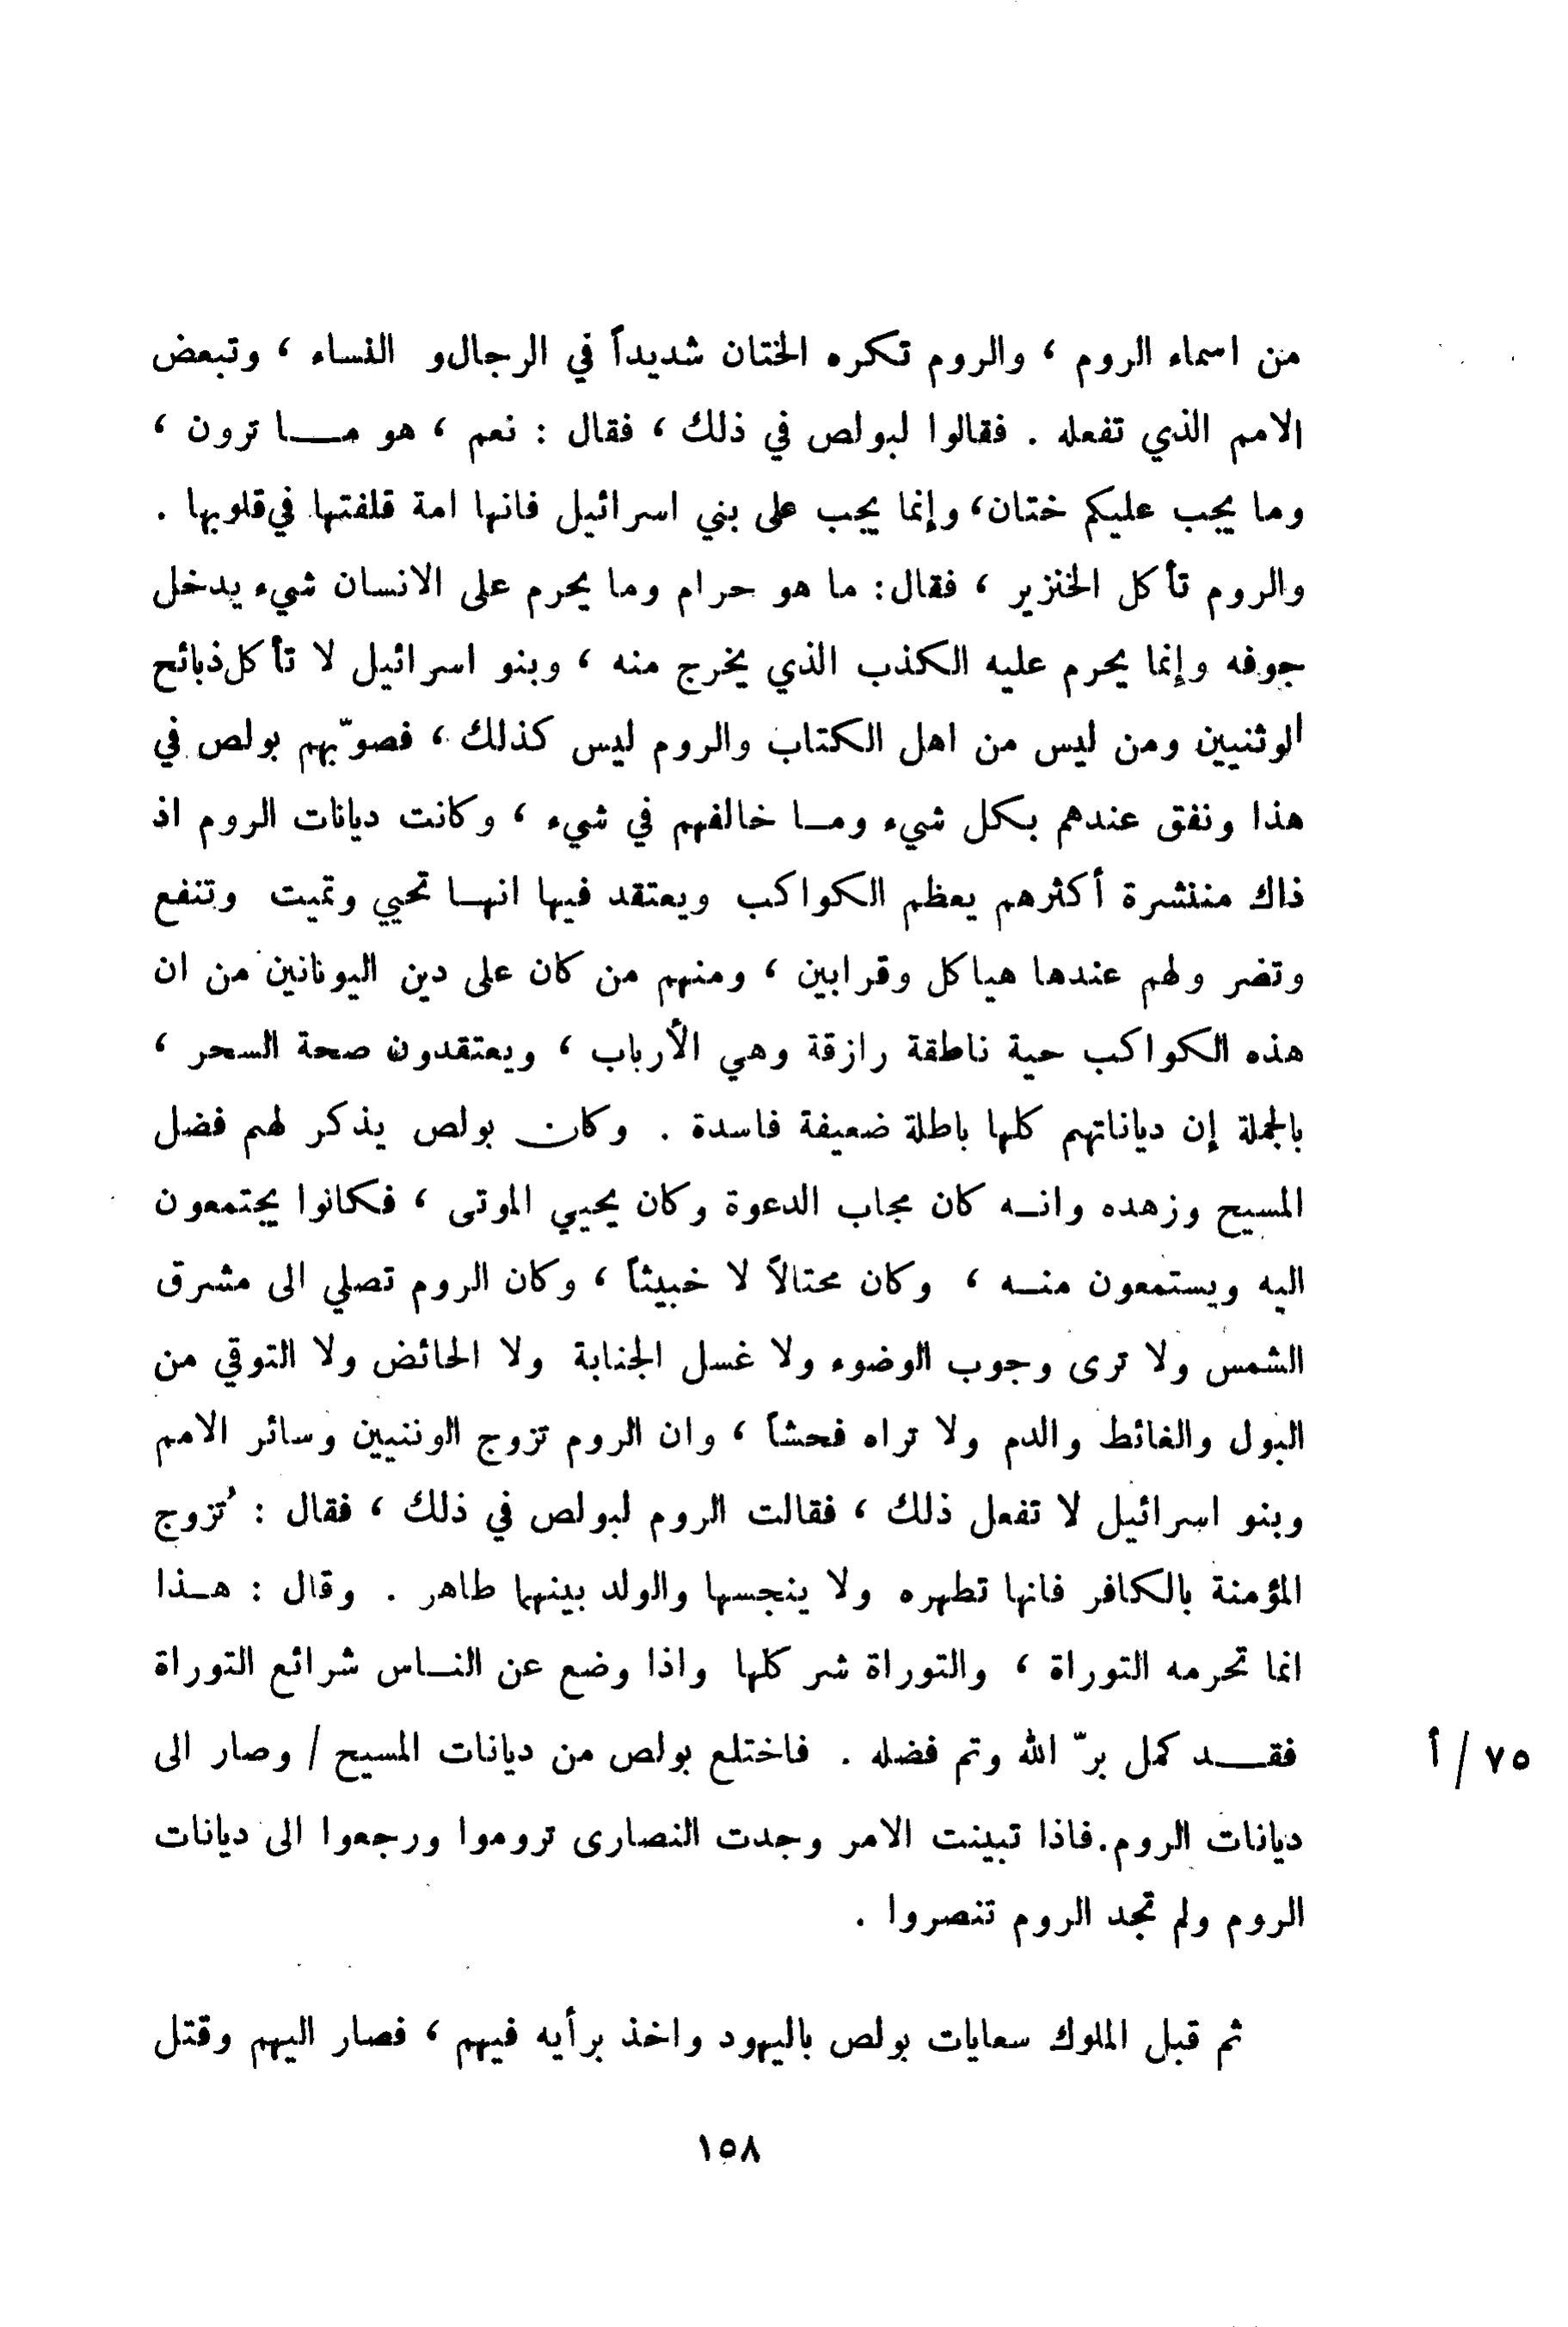 من اسماء الروم ، والروم تكره الختان شديداً في الرجالو النساء ، وتبعض
الامم الذي تفعله . فقالوا لبولص في ذلك ، فقال : نعم ، هو مـــا ترون ،
وما يجب عليكم ختان، وإنما يجب على بني اسرائيل فانها امة قلفتها في قلوبها .
والروم تأكل الخنزير ، فقال: ما هو حرام وما يحرم على الانسان شيء يدخل
جوفه وإنما يحرم عليه الكذب الذي يخرج منه ، وبنو اسرائيل لا تأكل ذبائح
الوثنيين ومن ليس من اهل الكتاب والروم ليس كذلك ، فصوّبهم بولص في
هذا ونفق عندهم بكل شيء ومـا خالفهم في شيء ، وكانت ديانات الروم اذ
ذاك منتشرة أكثرهم يعظم الكواكب ويعتقد فيها انهـا تحيي وتميت وتنفع
وتضر ولهم عندها هياكل وقرابين ، ومنهم من كان على دين اليونانين من ان
هذه الكواكب حية ناطقة رازقة وهي الأرباب ، ويعتقدون صحة السحر ،
بالجملة إن دياناتهم كلها باطلة ضعيفة فاسدة . وكان بولص يذكر لهم فضل
المسيح وزهده وانـه كان مجاب الدعوة وكان يحيي الموتى ، فكانوا يجتمعون
اليه ويستمعون منـه ، وكان محتالاً لا خبيثاً ، وكان الروم تصلي الى مشرق
الشمس ولا ترى وجوب الوضوء ولا غسل الجنابة ولا الحائض ولا التوقي من
البول والغائط والدم ولا تراه فحشاً ، وان الروم تزوج الوننيين وسائر الامم
وبنو اسرائيل لا تفعل ذلك ، فقالت الروم لبولص في ذلك ، فقال : تُزوج
المؤمنة بالكافر فانها تطهره ولا ينجسها والولد بينهما طاهر . وقال : هـذا
انما تحرمه التوراة ، والتوراة شر كلها واذا وضع عن النـاس شرائع التوراة
فقـــد كمل برّ الله وتم فضله . فاختلع بولص من ديانات المسيح / وصار الى
٧٥ / أ
ديانات الروم.فاذا تبينت الامر وجدت النصارى تروموا ورجعوا الى ديانات
الروم ولم تجد الروم تنصروا .
ثم قبل الملوك سعايات بولص باليهود واخذ برأيه فيهم ، فصار اليهم وقتل
١٥٨